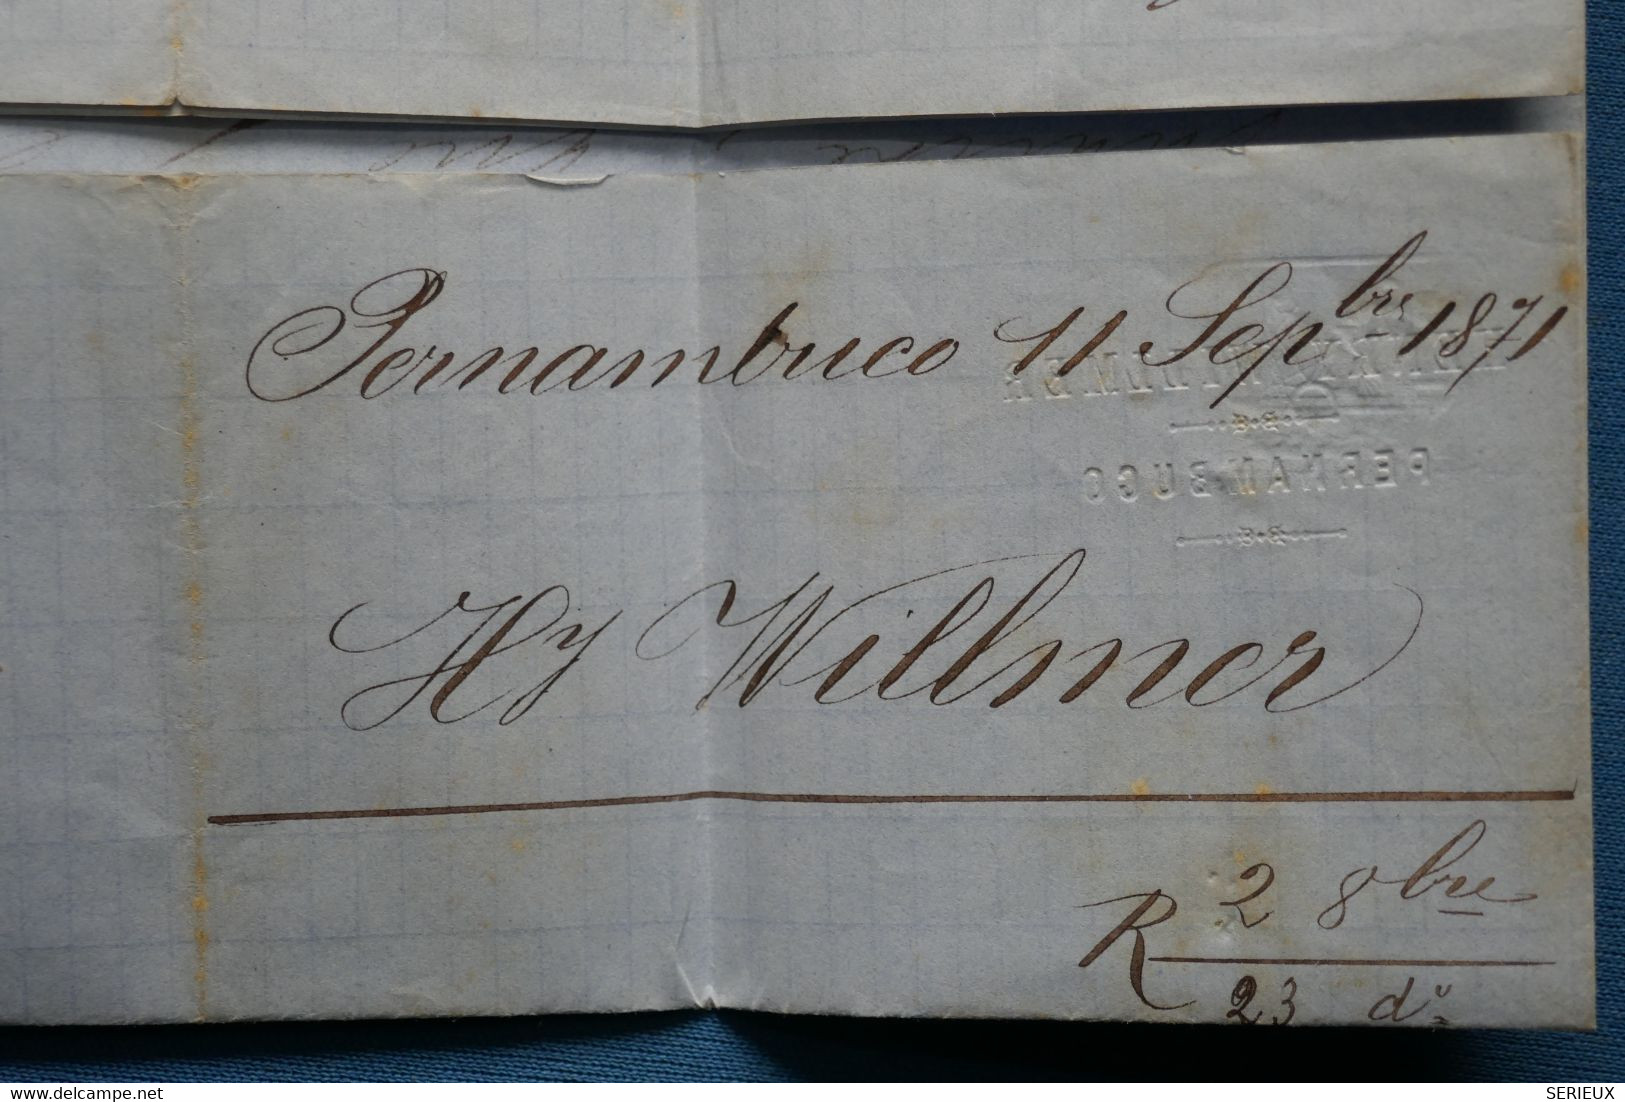 Pernambuco 11 Sepbre 1871
HENRY WILLMER
PERNAMBUCO
Hy Willmer
R 2 8bre
23 do
www.delcampe.net
SERIEUX